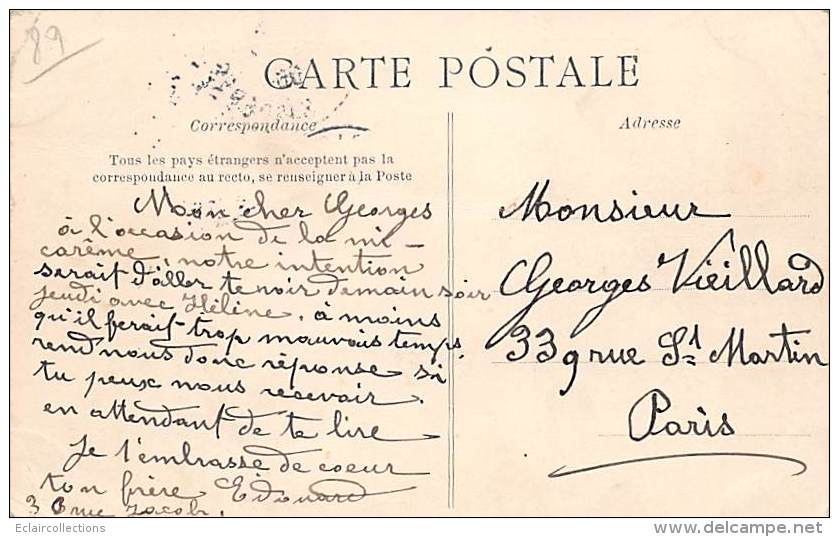 89
CARTE POSTALE
Correspondance
Adresse
Tous les pays étrangers n'acceptent pas la
correspondance au recto, se renseigner à la Poste
Mon cher Georges
à l'occasion de la mi-
carême, notre intention
serait d'aller te voir demain soir
jeudi avec Hélène, à moins
qu'il ferait trop mauvais temps,
rend nous donc réponse si
tu peux nous recevoir.
en attendant de te lire
Je t'embrasse de coeur
ton frère Edouard
rue Jacob.
Monsieur
Georges Vieillard
339 rue St Martin
Paris
Eclaircollections
delcampe.net